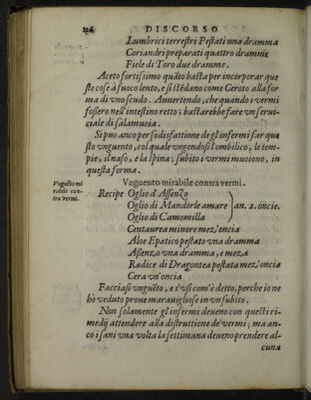 126 DISCORSO
Lumbrici terrestri Pestati una dramma
Coriandri preparati quattro dramme
Fiele di Toro due dramme.
Aceto fortissimo quãto basta per incorporar que
ste cose à fuoco lento, e si stēdano come Ceroto alla for
ma di vno scudo. Auuertendo, che quando i vermi
fossero nell'intestino retto; bastarebbe fare vn serui-
ciale di salamuoia.
Si puo anco per sodisfattione de gl'infermi far que
sto vnguento, col quale vngendosi l'ombilico, le tem-
pie, il naso, e la spina; subito i vermi muoiono, in
questa forma.
Vnguẽto mi
rabile con-
tra vermi.
Vnguento mirabile contra vermi.
Recipe Oglio d'Assenzo
Oglio di Mandorle amare an. 2. oncie.
Oglio di Camomilla
Centaurea minore mez'oncia
Aloe Epatico pestato vna dramma
Assenzo vna dramma, e meza
Radice di Dragontea pestata mez'oncia
Cera vn'oncia
Facciasi vnguẽto, e s'vsi com'è detto, perche io ne
hò veduto proue marauigliose in vn subito.
Non solamente gl'infermi deueno con questi ri-
medij attendere alla distruttione de'vermi; ma an-
co i sani vna volta la settimana deueno prendere al-
cuna